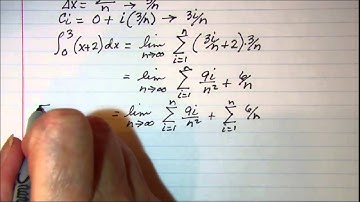 Δx = — → 3/n
Ci = 0 + i(3/n) → 3i/n
∫₀³ (x+2) dx = lim n→∞ Σ i=1 n (3i/n + 2) · 3/n
= lim n→∞ Σ i=1 n 9i/n² + 6/n
= lim n→∞ Σ i=1 n 9i/n² + Σ i=1 n 6/n